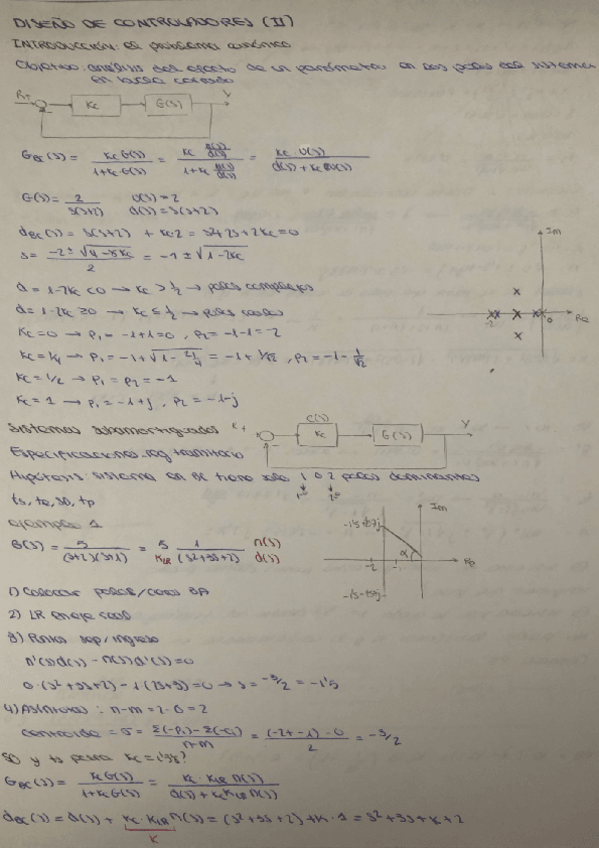 DISEÑO DE CONTROLADORES (II)
INTRODUCCIÓN: El problema canónico
Objetivo: análisis del efecto de un parámetro en los polos del sistema
en bucle cerrado
R+ Kc G(s) Y
-
GBC(s) = KcG(s)/(1+Kc·G(s)) = (Kc n(s)/d(s))/(1+Kc n(s)/d(s)) = Kc·n(s)/(d(s)+Kc n(s))
G(s) = 2/(s(s+2)) n(s)=2
d(s) = s(s+2)
dBC(s) = s(s+2) + Kc·2 = s²+2s+2Kc=0
s = (-2 ± √(4-8Kc))/2 = -1 ± √(1-2Kc)
d = 1-2Kc <0 → Kc > 1/2 → polos complejos
d = 1-2Kc ≥0 → Kc ≤ 1/2 → polos reales
Im
-2 0 Re
Kc=0 → P1=-1+1=0, P2=-1-1=-2
Kc=1/4 → P1=-1+√(1-2·1/4) = -1+1/√2, P2=-1-1/√2
Kc=1/2 → P1=P2=-1
Kc=1 → P1=-1+j, P2=-1-j
Sistemas subamortiguados R+ C(s) Kc G(s) Y
-
Especificaciones reg transitorio
Hipótesis: sistema en BC tiene solo 1 o 2 polos dominantes
1º 2º
ts, tr, SO, tp
ejemplo 1
G(s) = 5/((s+2)(s+1)) = 5 1/(s²+3s+2) n(s)
KLR d(s)
Im
α
-2 -1 Re
1) Colocar polos/ceros BA
2) LR en eje real
3) Puntos sep/ingreso
n'(s)d(s) - n(s)d'(s)=0
0·(s²+3s+2) - 1(2s+3)=0 → s=-3/2=-1'5
4) Asíntotas: n-m=2-0=2
centroide = σ = (Σ(-pi)-Σ(-ci))/(n-m) = ((-2+-1)-0)/2 = -3/2
SO y ts para
GBC(s) = KcG(s)/(1+KcG(s)) = Kc·KLR n(s)/(d(s)+KcKLR n(s))
dBC(s) = d(s) + Kc·KLR n(s) = (s²+3s+2)+K·1 = s²+3s+K+2
K